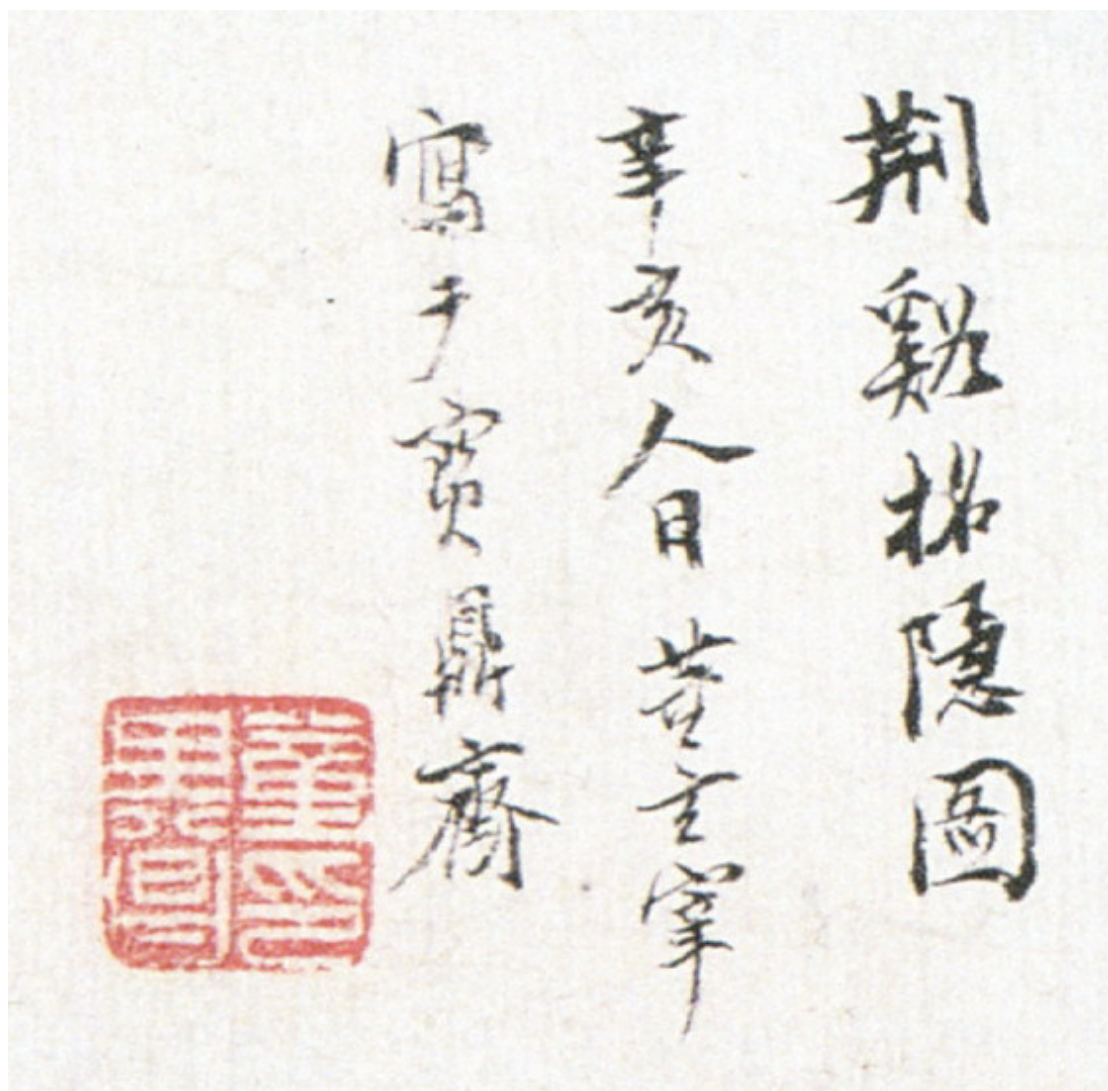 荊谿招隱圖
辛亥人日董玄宰
寫于寶鼎齋
董其昌印